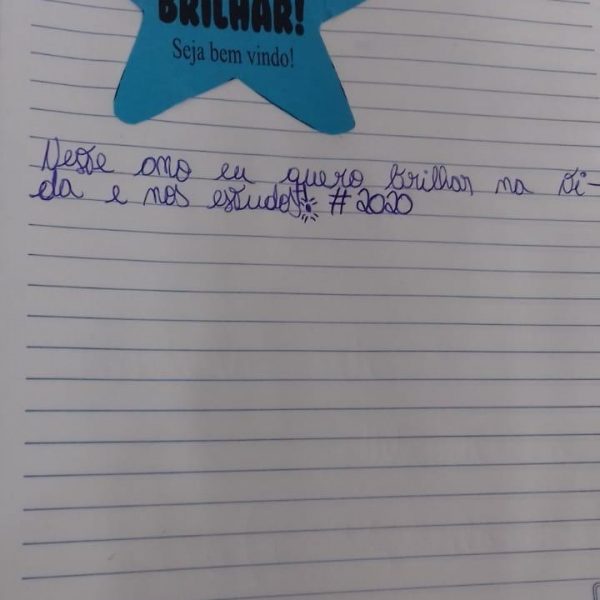 BRILHAR!
Seja bem vindo!
Neste ano eu quero brilhar na vi-
da e nos estudos! #2020